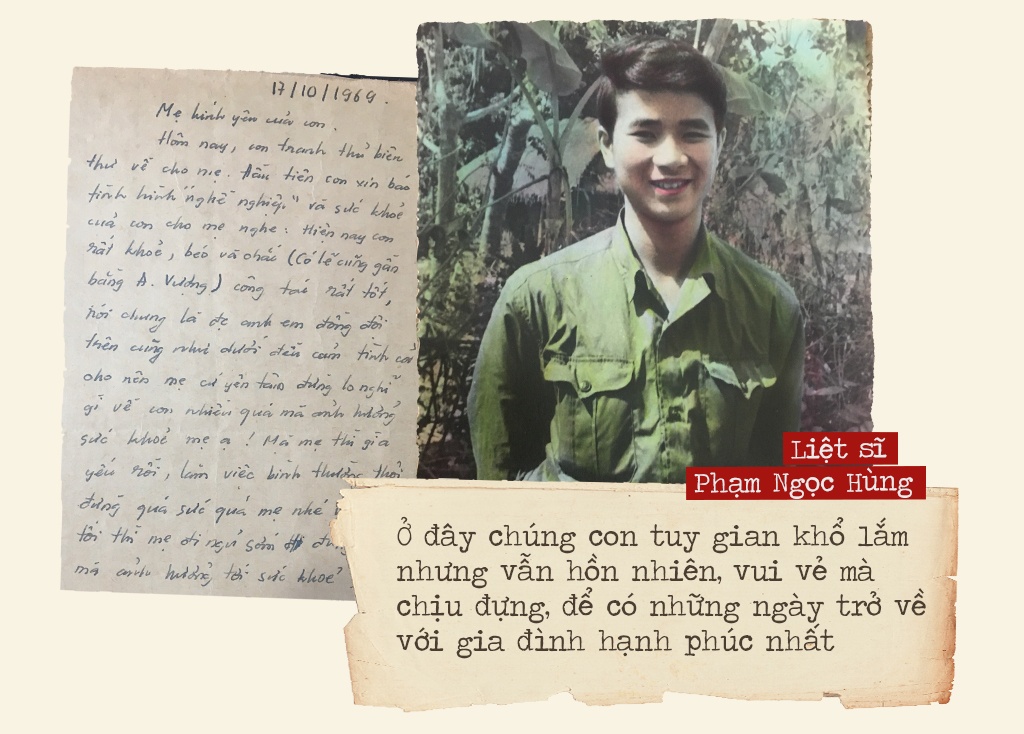 17/10/1969.
Mẹ kính yêu của con.
Hôm nay, con tranh thủ biên
thư về cho mẹ. Đầu tiên con xin báo
tình hình "nghề nghiệp" và sức khoẻ
của con cho mẹ nghe: Hiện nay con
rất khoẻ, béo và chắc (Có lẽ cũng gần
bằng A. Vượng) công tác rất tốt,
nói chung là được anh em đồng đội
trên cũng như dưới đến cảm tình cả
cho nên mẹ cứ yên tâm đừng lo nghĩ
gì về con nhiều quá mà ảnh hưởng
sức khoẻ mẹ ạ! Mà mẹ thì già
yếu rồi, làm việc bình thường thôi
đừng quá sức quá mẹ nhé
tối thì mẹ đi ngủ sớm
mà ảnh hưởng tới sức khoẻ
Liệt sĩ
Phạm Ngọc Hùng
Ở đây chúng con tuy gian khổ lắm
nhưng vẫn hồn nhiên, vui vẻ mà
chịu đựng, để có những ngày trở về
với gia đình hạnh phúc nhất